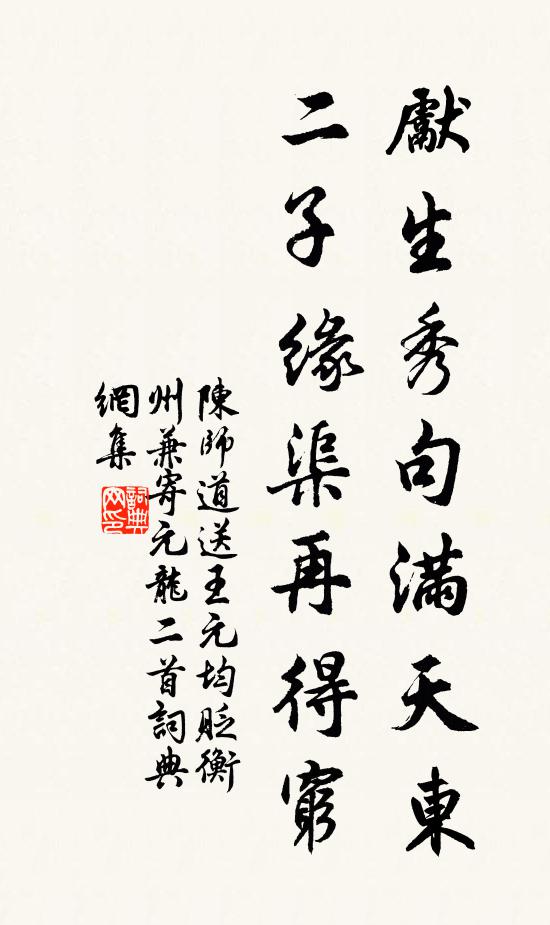 獻生秀句滿天東
二子緣渠再得窮
陳師道送王元均貶衡
州兼寄元龍二首詞典
網集
詞典
网印